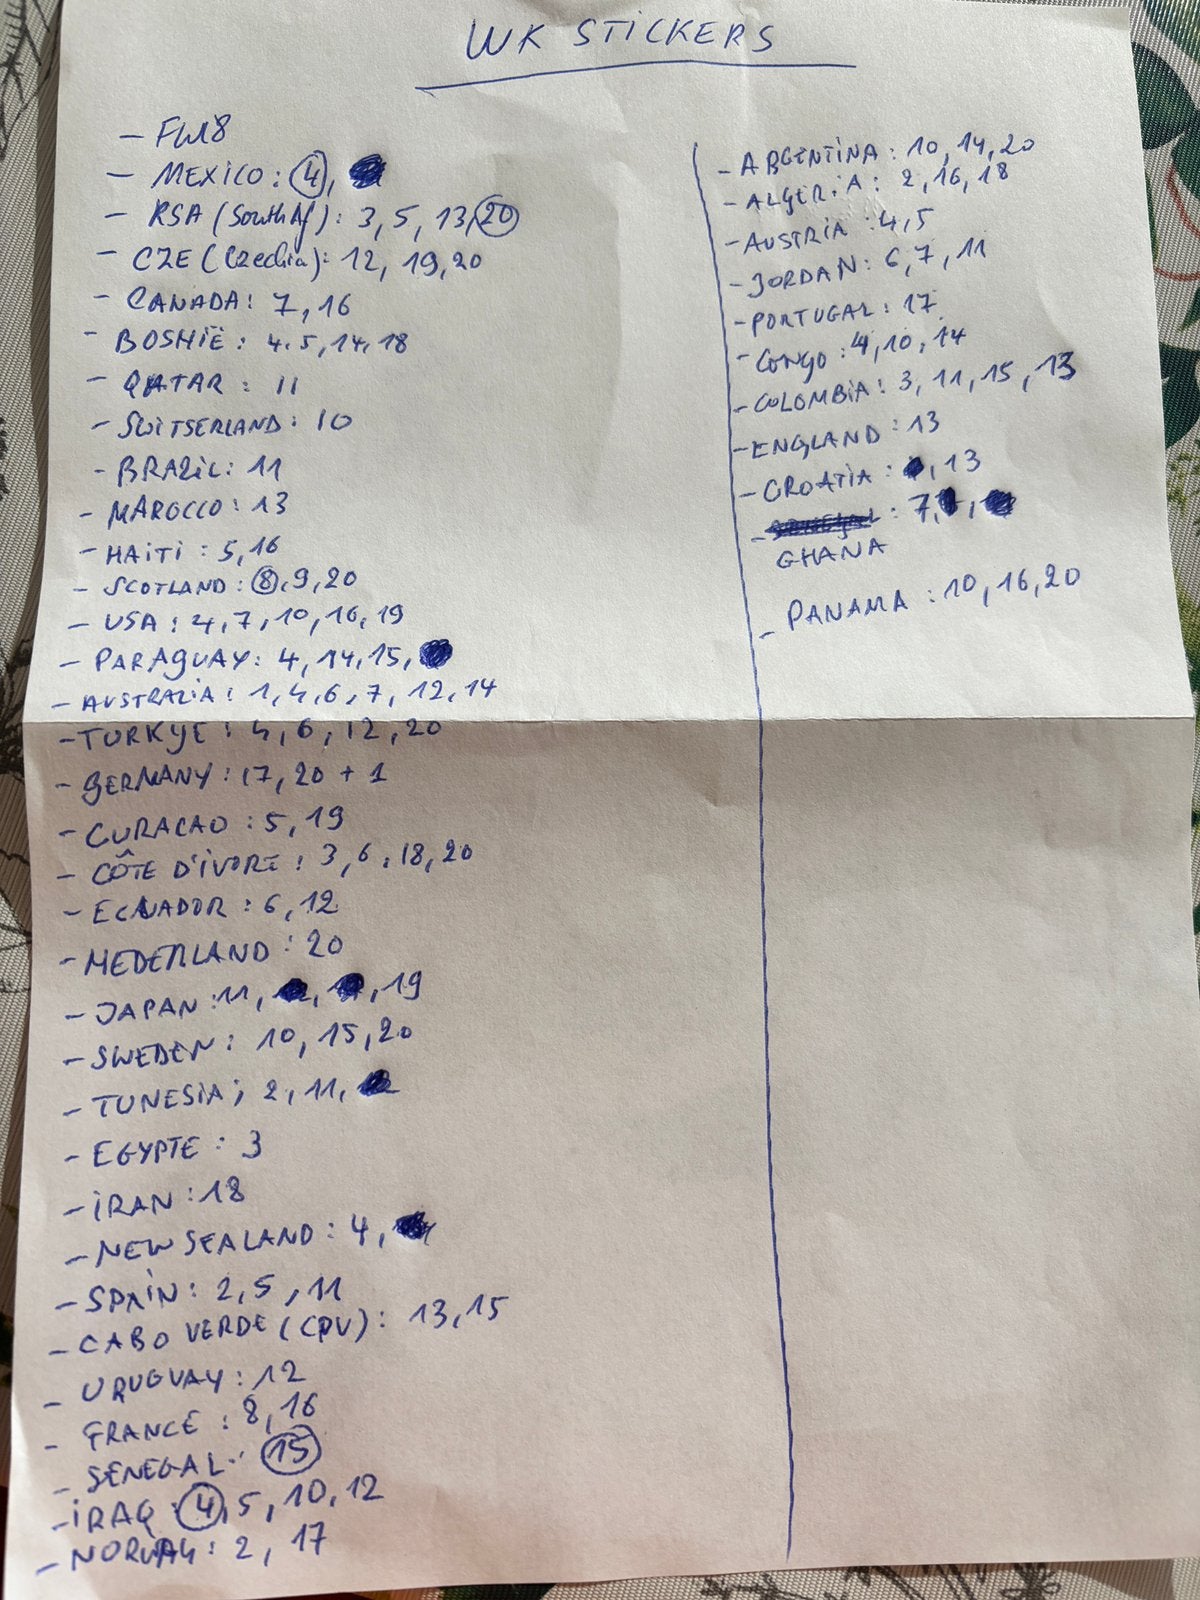 WK STICKERS
- FW18
- MEXICO: 4,
- RSA (South Af): 3, 5, 13, 20
- CZE (Czechia): 12, 19, 20
- CANADA: 7, 16
- BOSNIË: 4, 5, 14, 18
- QATAR: 11
- SWITSERLAND: 10
- BRAZIL: 11
- MAROCCO: 13
- HAITI: 5, 16
- SCOTLAND: 8, 9, 20
- USA: 4, 7, 10, 16, 19
- PARAGUAY: 4, 14, 15,
- AUSTRALIA: 1, 4, 6, 7, 12, 14
- TURKYE: 4, 6, 12, 20
- GERMANY: 17, 20 + 1
- CURACAO: 5, 19
- CÔTE D'IVORE: 3, 6, 18, 20
- ECUADOR: 6, 12
- NEDERLAND: 20
- JAPAN: 11, , , 19
- SWEDEN: 10, 15, 20
- TUNESIA; 2, 11,
- EGYPTE: 3
- IRAN: 18
- NEW SEALAND: 4,
- SPAIN: 2, 5, 11
- CABO VERDE (CPV): 13, 15
- URUGUAY: 12
- FRANCE: 8, 16
- SENEGAL: 15
- IRAQ: 4, 5, 10, 12
- NORWAY: 2, 17
- ARGENTINA: 10, 14, 20
- ALGERIA: 2, 16, 18
- AUSTRIA: 4, 5
- JORDAN: 6, 7, 11
- PORTUGAL: 17
- CONGO: 4, 10, 14
- COLOMBIA: 3, 11, 15, 13
- ENGLAND: 13
- CROATIA: , 13
- : 7, ,
GHANA
- PANAMA: 10, 16, 20